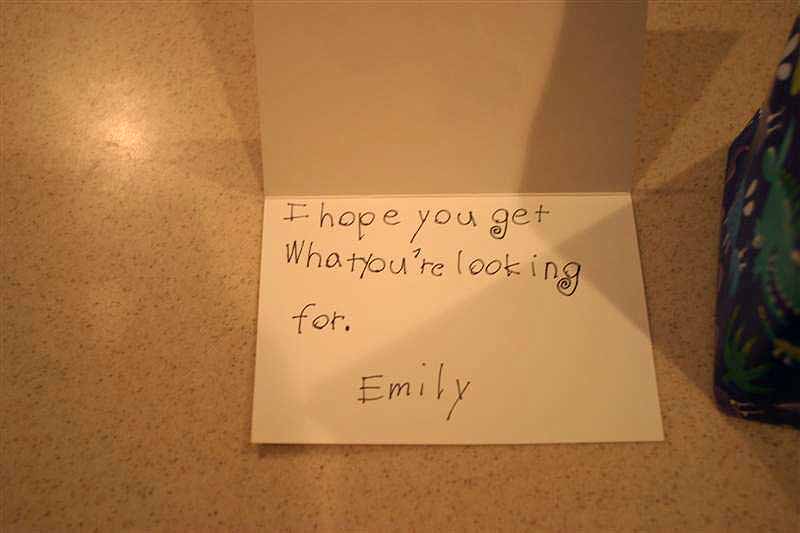 I hope you get
What you're looking
for.
Emily